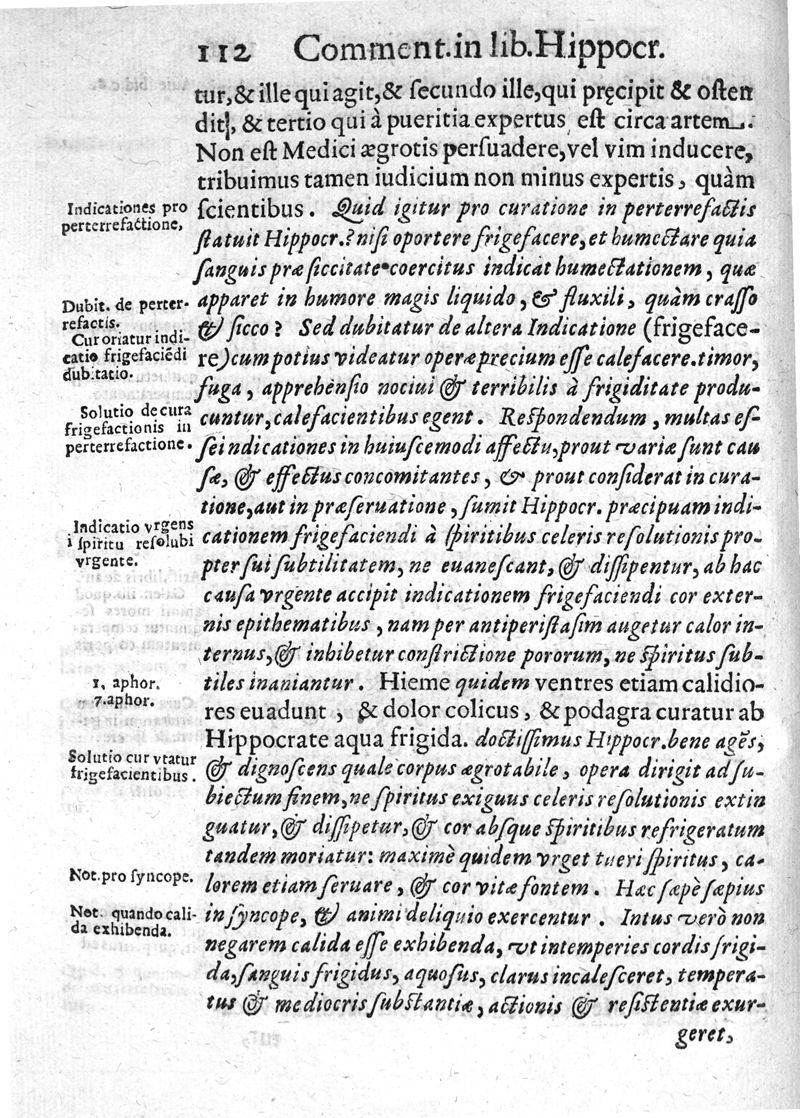 112 Comment.in lib.Hippocr.
tur,& ille qui agit,& ſecundo ille,qui pręcipit & oſten
dit, & tertio qui à pueritia expertus eſt circa artem.
Non eſt Medici ægrotis perſuadere,vel vim inducere,
tribuimus tamen iudicium non minus expertis, quàm
ſcientibus. Quid igitur pro curatione in perterrefactis
ſtatuit Hippocr.? niſi oportere frigefacere, et humectare quia
ſanguis præ ſiccitate coercitus indicat humectationem, quæ
apparet in humore magis liquido, & fluxili, quàm craſſo
& ſicco? Sed dubitatur de altera Indicatione (frigeface-
re) cum potius videatur operæprecium eſſe calefacere. timor,
fuga, apprehenſio nociui & terribilis à frigiditate produ-
cuntur, calefacientibus egent. Reſpondendum, multas eſ-
ſe indicationes in huiuſcemodi affectu, prout variæ ſunt cau
ſæ, & effectus concomitantes, & prout conſiderat in cura-
tione, aut in præſeruatione, ſumit Hippocr. præcipuam indi-
cationem frigefaciendi à ſpiritibus celeris reſolutionis pro-
pter ſui ſubtilitatem, ne euaneſcant, & diſſipentur, ab hac
cauſa vrgente accipit indicationem frigefaciendi cor exter-
nis epithematibus, nam per antiperiſtaſim augetur calor in-
ternus, & inhibetur conſtrictione pororum, ne ſpiritus ſub-
tiles inaniantur. Hieme quidem ventres etiam calidio-
res euadunt, & dolor colicus, & podagra curatur ab
Hippocrate aqua frigida. doctiſſimus Hippocr. bene agẽs,
& dignoſcens quale corpus ægrotabile, opera dirigit ad ſu-
biectum finem, ne ſpiritus exiguus celeris reſolutionis extin
guatur, & diſſipetur, & cor abſque ſpiritibus refrigeratum
tandem moriatur: maximè quidem vrget tueri ſpiritus, ca-
lorem etiam ſeruare, & cor vitæ fontem. Hæc ſæpè ſæpius
in ſyncope, & animi deliquio exercentur. Intus verò non
negarem calida eſſe exhibenda, vt intemperies cordis frigi-
da, ſanguis frigidus, aquoſus, clarus incaleſceret, tempera-
tus & mediocris ſubſtantiæ, actionis & reſiſtentiæ exur-
geret,
Indicationes pro
perterrefactione,
Dubit. de perter-
refactis.
Cur oriatur indi-
catio frigefaciẽdi
dubitatio.
Solutio de cura
frigefactionis in
perterrefactione.
Indicatio vrgens
i ſpiritu reſolubi
vrgente.
1, aphor.
7.aphor.
Solutio cur vtatur
frigefacientibus.
Not.pro ſyncope.
Not. quando cali-
da exhibenda.